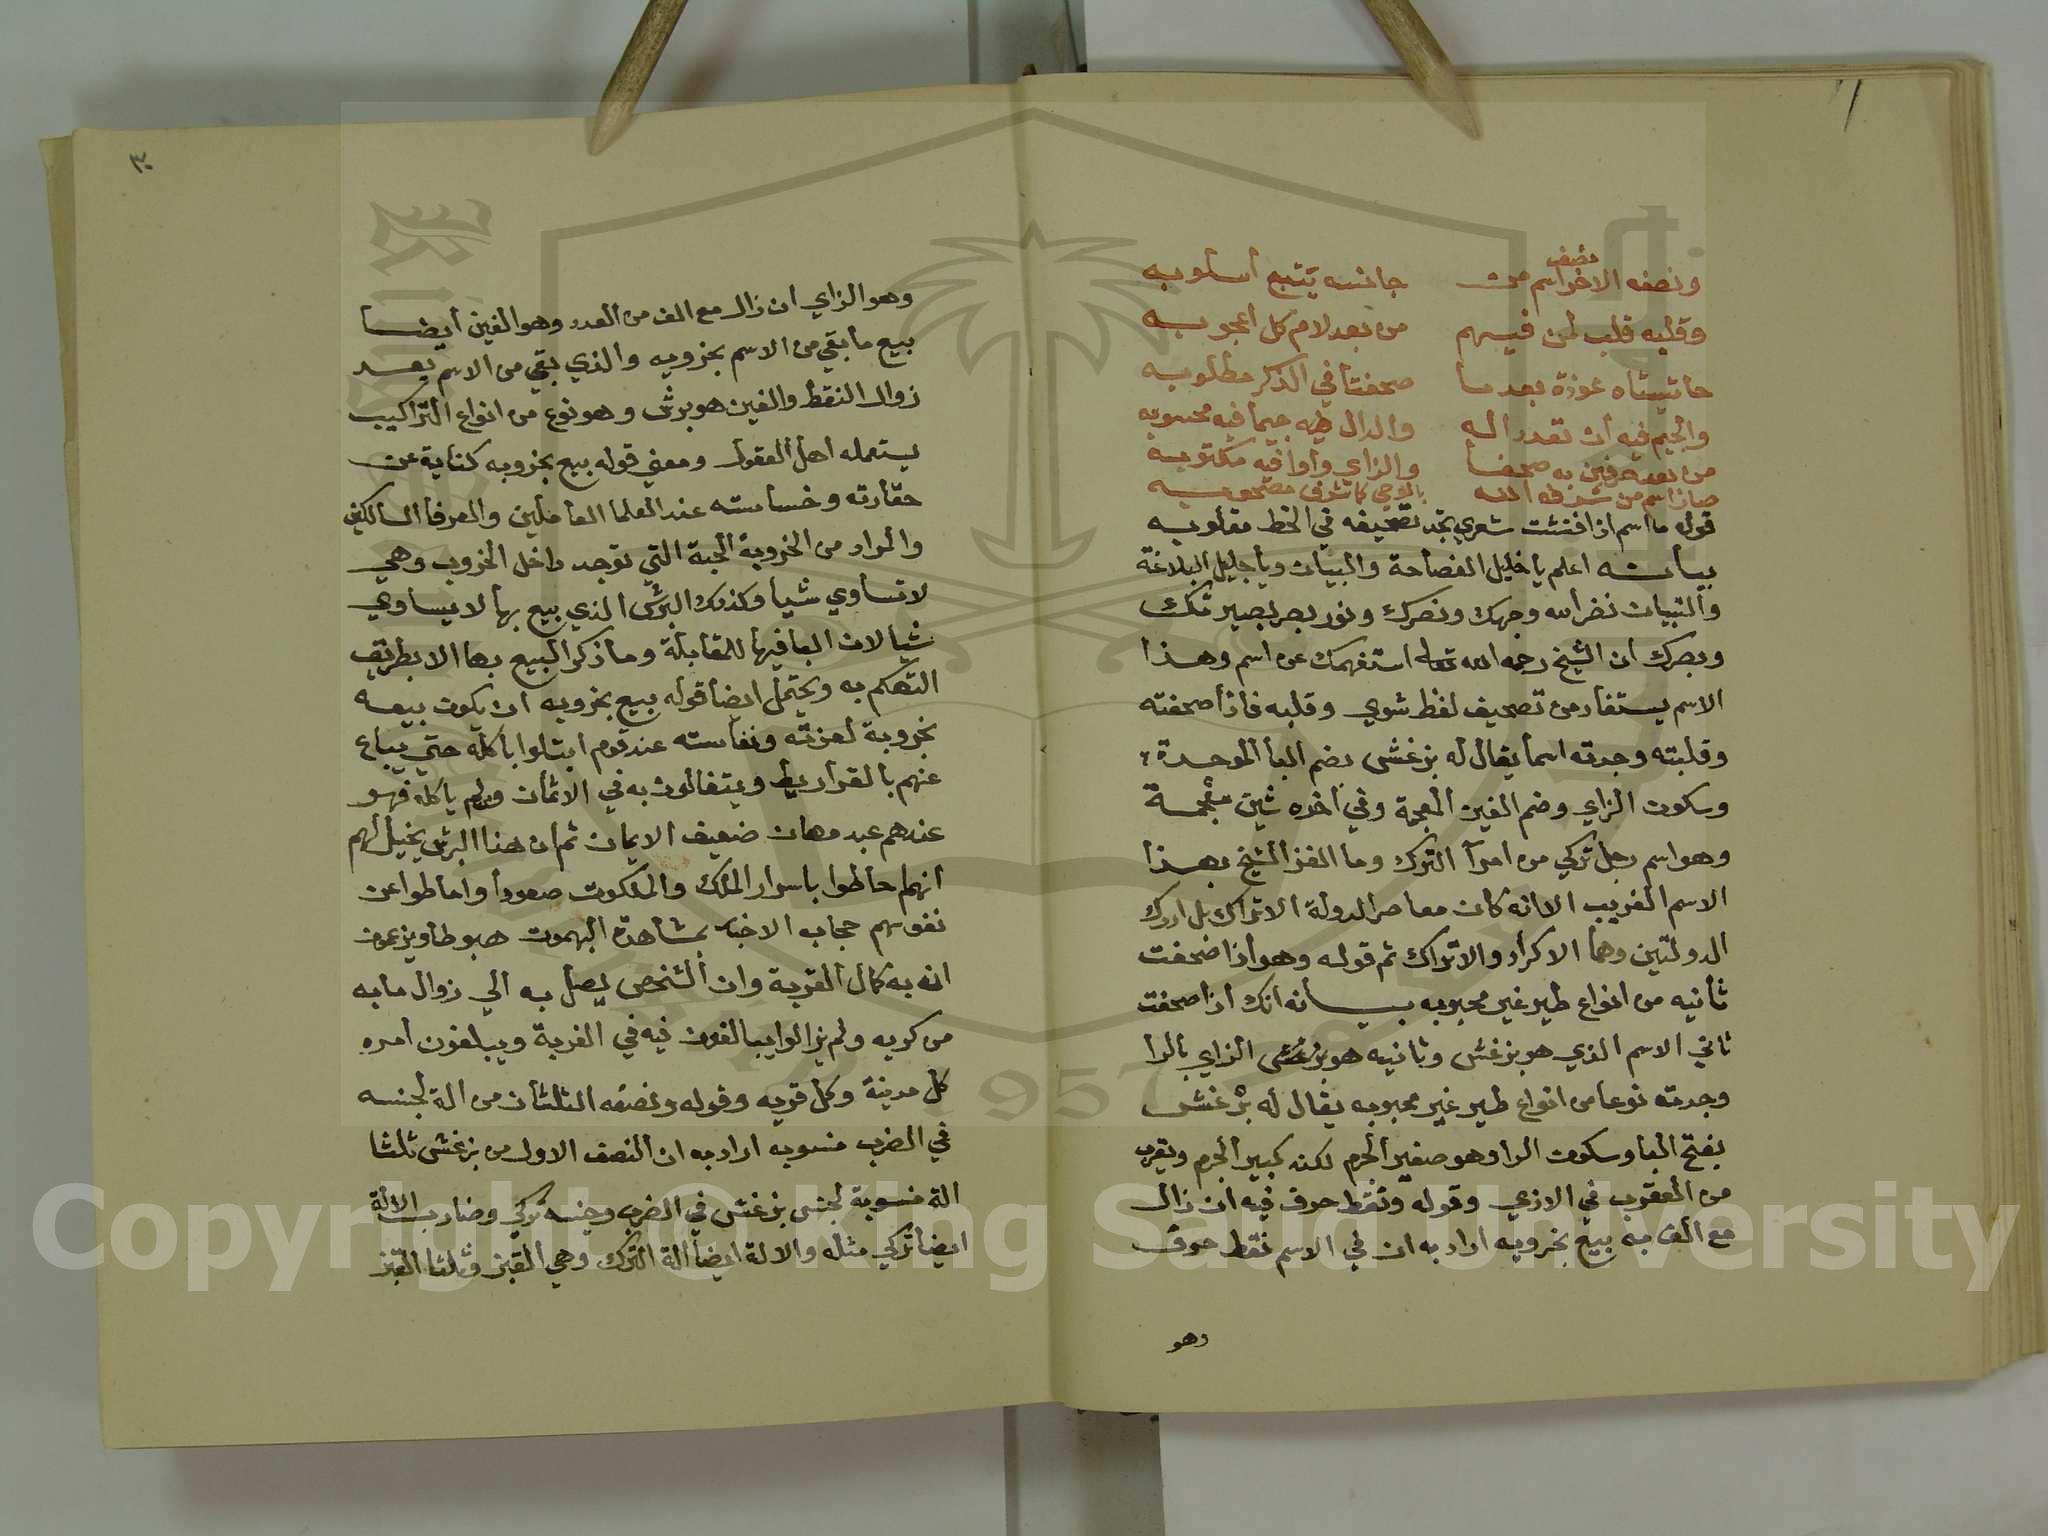 نصف
ونصفه الاخر اسم من جانسه يتبع أسلوبه
وقلبه قلب لمن فيهم من بعد لام كل أعجوبه
حاشيتاه عوذة بعد ما صحفتا في الذكر مطلوبه
والجيم فيه أن تعدد اله والدال جيما فيه محسوبه
من بعد حرفين به صحفا والزاي واوا فيه مكتوبه
صار اسم من شرفه الله بالوحي كما شرف مصحوبه
قوله ما اسم اذا فتشت شعري تجد تصحيفه في الخط مقلوبه
بيانه اعلم يا خليل الفصاحة والبيان ويا جليل البلاغة
والتبيان نضر الله وجهك ونصرك ونور بصر بصيرتك
وبصرك ان الشيخ رحمه الله تعالى استفهمك عن اسم وهذا
الاسم يستفاد من تصحيف لفظ شوي وقلبه فاذا صحفته
وقلبته وجدته اسما يقال له بزغش بضم البا الموحدة
وسكون الزاي وضم الغين المعجمة وفي أخره شين معجمة
وهو اسم رجل تركي من امرآ الترك وما الغز الشيخ بهذا
الاسم الغريب الا انه كان معاصر الدولة الاتراك بل ادرك
الدولتين وهما الاكراد والاتراك ثم قوله وهو اذا صحفت
ثانيه من انواع طير غير محبوبه بيانه انك اذا صحفت
ثاني الاسم الذي هو بزغش وثانيه هو بزغش الزاي بالرا
وجدته نوعا من انواع طير غير محبوبه يقال له برغش
بفتح البا وسكون الرا وهو صغير الجرم لكنه كبير الجرم ويقرب
من العقرب في الاذي وقوله ونقط حرف فيه ان زال
مع الف به بيع بخروبه اراد به ان في الاسم نقط حرف
وهو
٣٠
وهو الزاي ان زال مع الف من العدد وهو الغين أيضا
بيع ما بقي من الاسم بخروبه والذي بقي من الاسم بعد
زوال النقط والغين هو برش وهو نوع من انواع التراكيب
يستعمله اهل العقول ومعني قوله بيع بخروبه كناية عن
حقارته وخساسته عند العلما العاملين والعرفا السالكين
والمراد من الخروبة الحبة التي توجد داخل الخروب وهي
لا تساوي شيا وكذلك البرش الذي بيع بها لا يساوي
شيا لان البا فيها للمقابلة وما ذكر البيع بها الا بطريق
التهكم به ويحتمل ايضا قوله بيع بخروبه ان يكون بيعه
بخروبة لعزته ونفاسته عند قوم ابتلوا باكله حتي يباع
عنهم بالقراريط ويتغالون به في الاثمان ولم ياكله فهو
عندهم عبد مهان ضعيف الايمان ثم ان هذا البرش يخيل لهم
انهم احاطوا باسرار الملك والملكوت صعودا واماطوا عن
نفوسهم حجاب الاختبا بمشاهدة البهموت هبوطا ويزعمون
انه به كمال القربة وان الشخص يصل به الي زوال ما به
من كربه ولم يزالوا يبالغون فيه في الغربة ويبلغون امره
كل مدينة وكل قريه وقوله ونصفه الثلثان من الة لجنسه
في الضرب منسوبه اراد به ان النصف الاول من بزغش ثلثا
الة منسوبة لجنس بزغش في الضرب وجنسه تركي وضارب الالة
ايضا تركي مثله والالة ايضا الة الترك وهي القبز وثلثا القبز
Copyright © King Saud University
1957